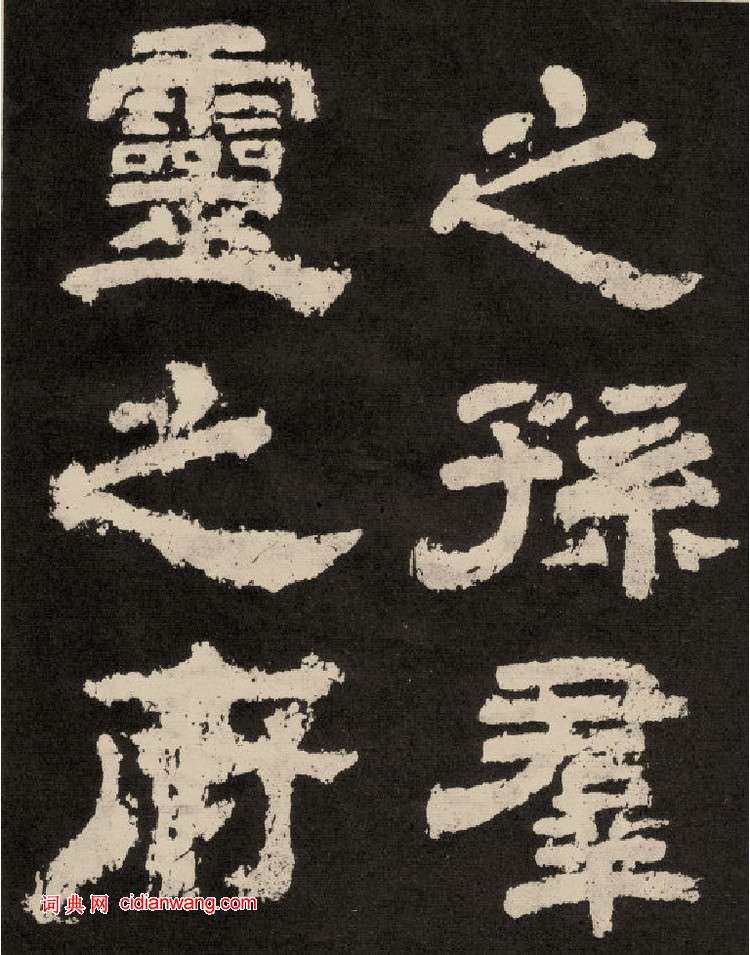 之孫羣
靈之府
词典网 cidianwang.com